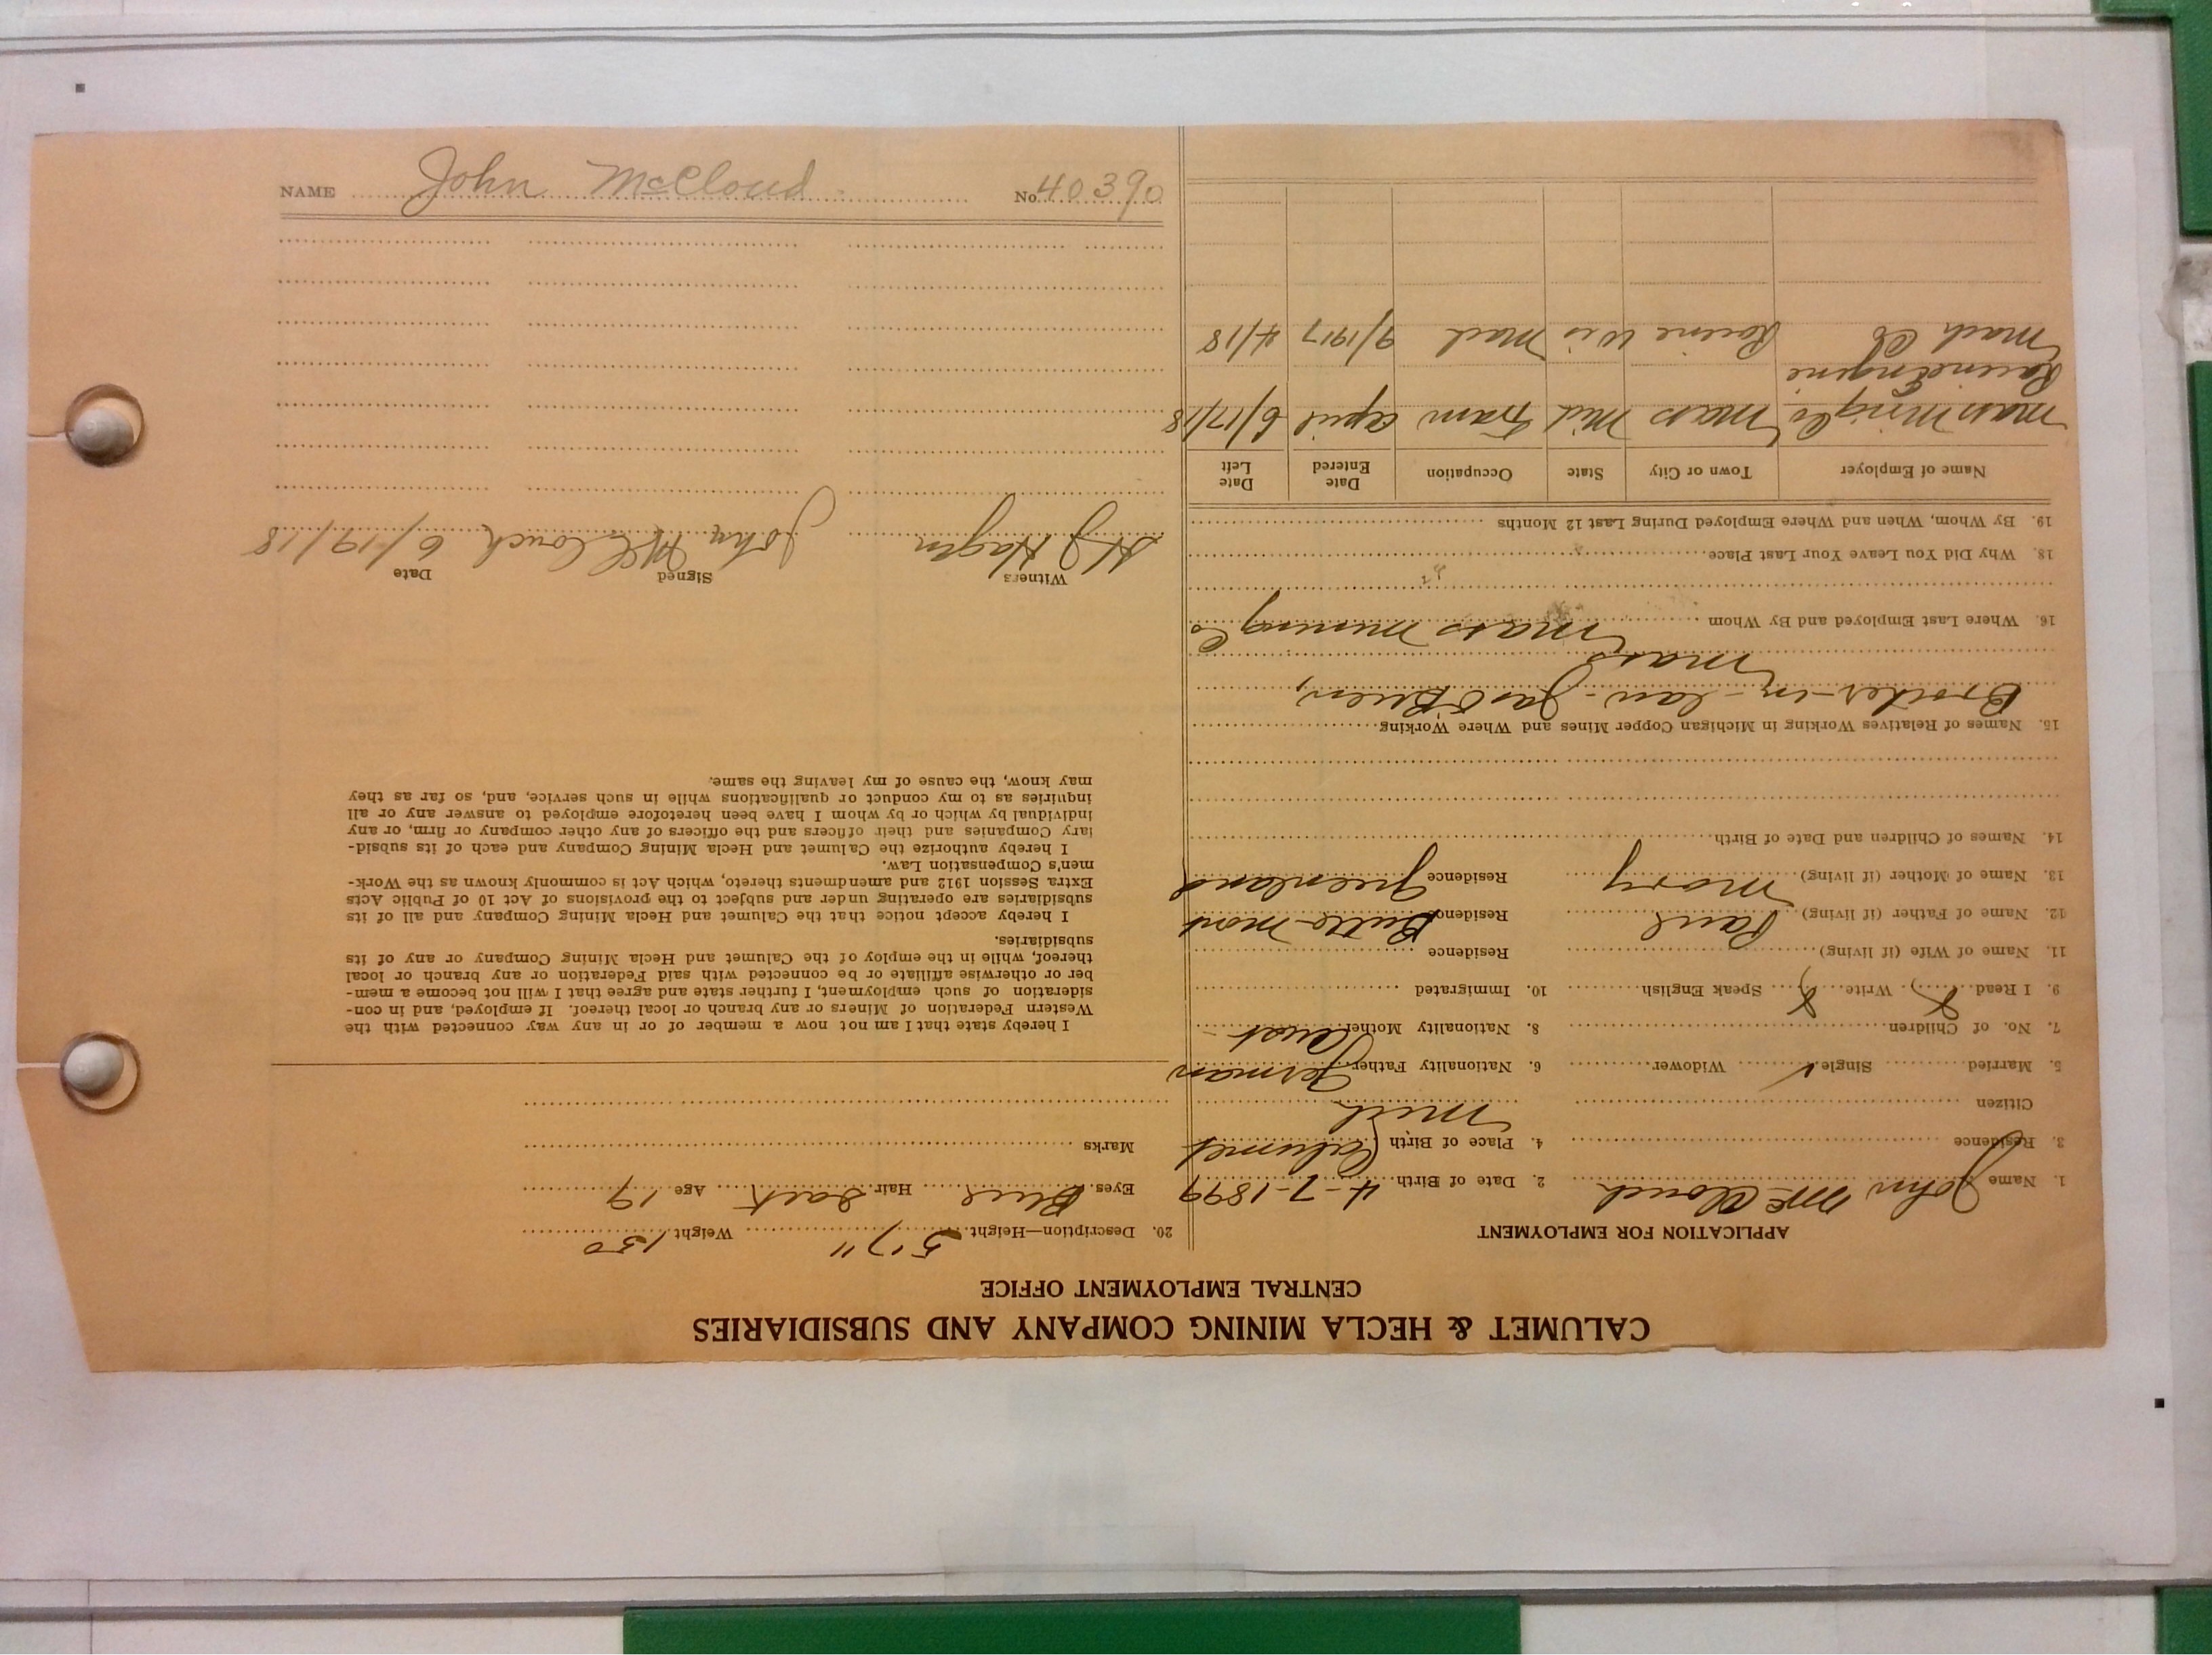 CALUMET & HECLA MINING COMPANY AND SUBSIDIARIES
CENTRAL EMPLOYMENT OFFICE
APPLICATION FOR EMPLOYMENT
1. Name John McClouch 2. Date of Birth 4-7-1899
3. Residence 4. Place of Birth Calumet
Citizen Mich
5. Married Single ✓ Widower 6. Nationality Father German
7. No. of Children 8. Nationality Mother
9. I Read X Write X Speak English 10. Immigrated
11. Name of Wife (if living) Residence
12. Name of Father (if living) Paul Residence Butte-Mont
13. Name of Mother (if living) Mary Residence Greenland
14. Names of Children and Date of Birth
15. Names of Relatives Working in Michigan Copper Mines and Where Working
Brother-in-law-Jas O'Brien,
Mass
16. Where Last Employed and By Whom Mass Mining Co
18. Why Did You Leave Your Last Place
19. By Whom, When and Where Employed During Last 12 Months
Name of Employer Town or City State Occupation Date Entered Date Left
Mass Ming Co Mass Mich Tram April 6/17/18
Racine Engine
Mach Co Racine Wis Mach 9/1917 4/18
20. Description—Height 5'7" Weight 150
Eyes Blue Hair Dark Age 19
Marks
I hereby state that I am not now a member of or in any way connected with the
Western Federation of Miners or any branch or local thereof. If employed, and in con-
sideration of such employment, I further state and agree that I will not become a mem-
ber or otherwise affiliate or be connected with said Federation or any branch or local
thereof, while in the employ of the Calumet and Hecla Mining Company or any of its
subsidiaries.
I hereby accept notice that the Calumet and Hecla Mining Company and all of its
subsidiaries are operating under and subject to the provisions of Act 10 of Public Acts
Extra Session 1912 and amendments thereto, which Act is commonly known as the Work-
men's Compensation Law.
I hereby authorize the Calumet and Hecla Mining Company and each of its subsid-
iary Companies and their officers and the officers of any other company or firm, or any
individual by which or by whom I have been heretofore employed to answer any or all
inquiries as to my conduct or qualifications while in such service, and, so far as they
may know, the cause of my leaving the same.
Witness Signed Date
H J Hagen John McClouch 6/19/18
NAME John McCloud No. 40390